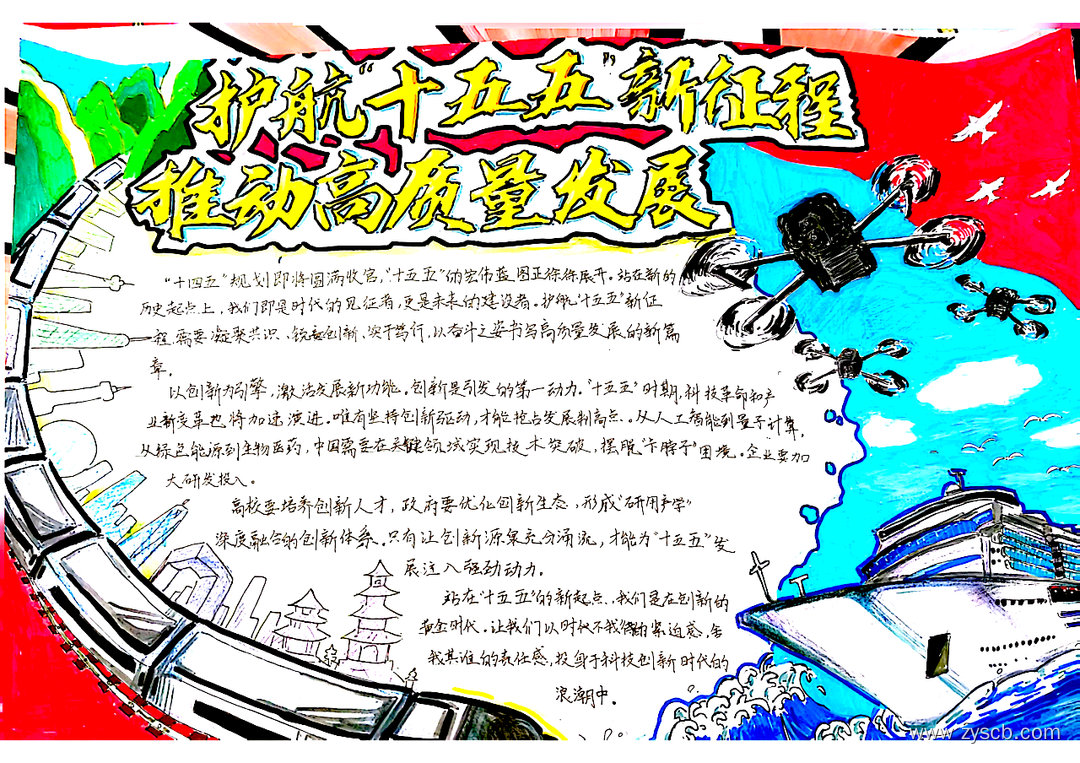 护航“十五五”新征程
推动高质量发展
“十四五”规划即将圆满收官，“十五五”的宏伟蓝图正徐徐展开。站在新的
历史起点上，我们即是时代的见证者，更是未来的建设者。护航“十五五”新征
程需要凝聚共识、锐意创新、实干笃行，以奋斗之姿书写高质量发展的新篇
章。
以创新为引擎，激活发展新功能。创新是引发的第一动力。“十五五”时期，科技革命和产
业新变革也将加速演进。唯有坚持创新驱动，才能抢占发展制高点、从人工智能到量子计算，
从绿色能源到生物医药，中国需要在关键领域实现技术突破，摆脱“卡脖子”困境。企业要加
大研发投入。
高校要培养创新人才，政府要优化创新生态，形成“研用产学”
深度融合的创新体系。只有让创新源泉充分涌流，才能为“十五五”发
展注入强劲动力。
站在“十五五”的新起点，我们是在创新的
黄金时代。让我们以时代不我待的紧迫感，舍
我其谁的责任感，投身于科技创新时代的
浪潮中。
www.zyscb.com